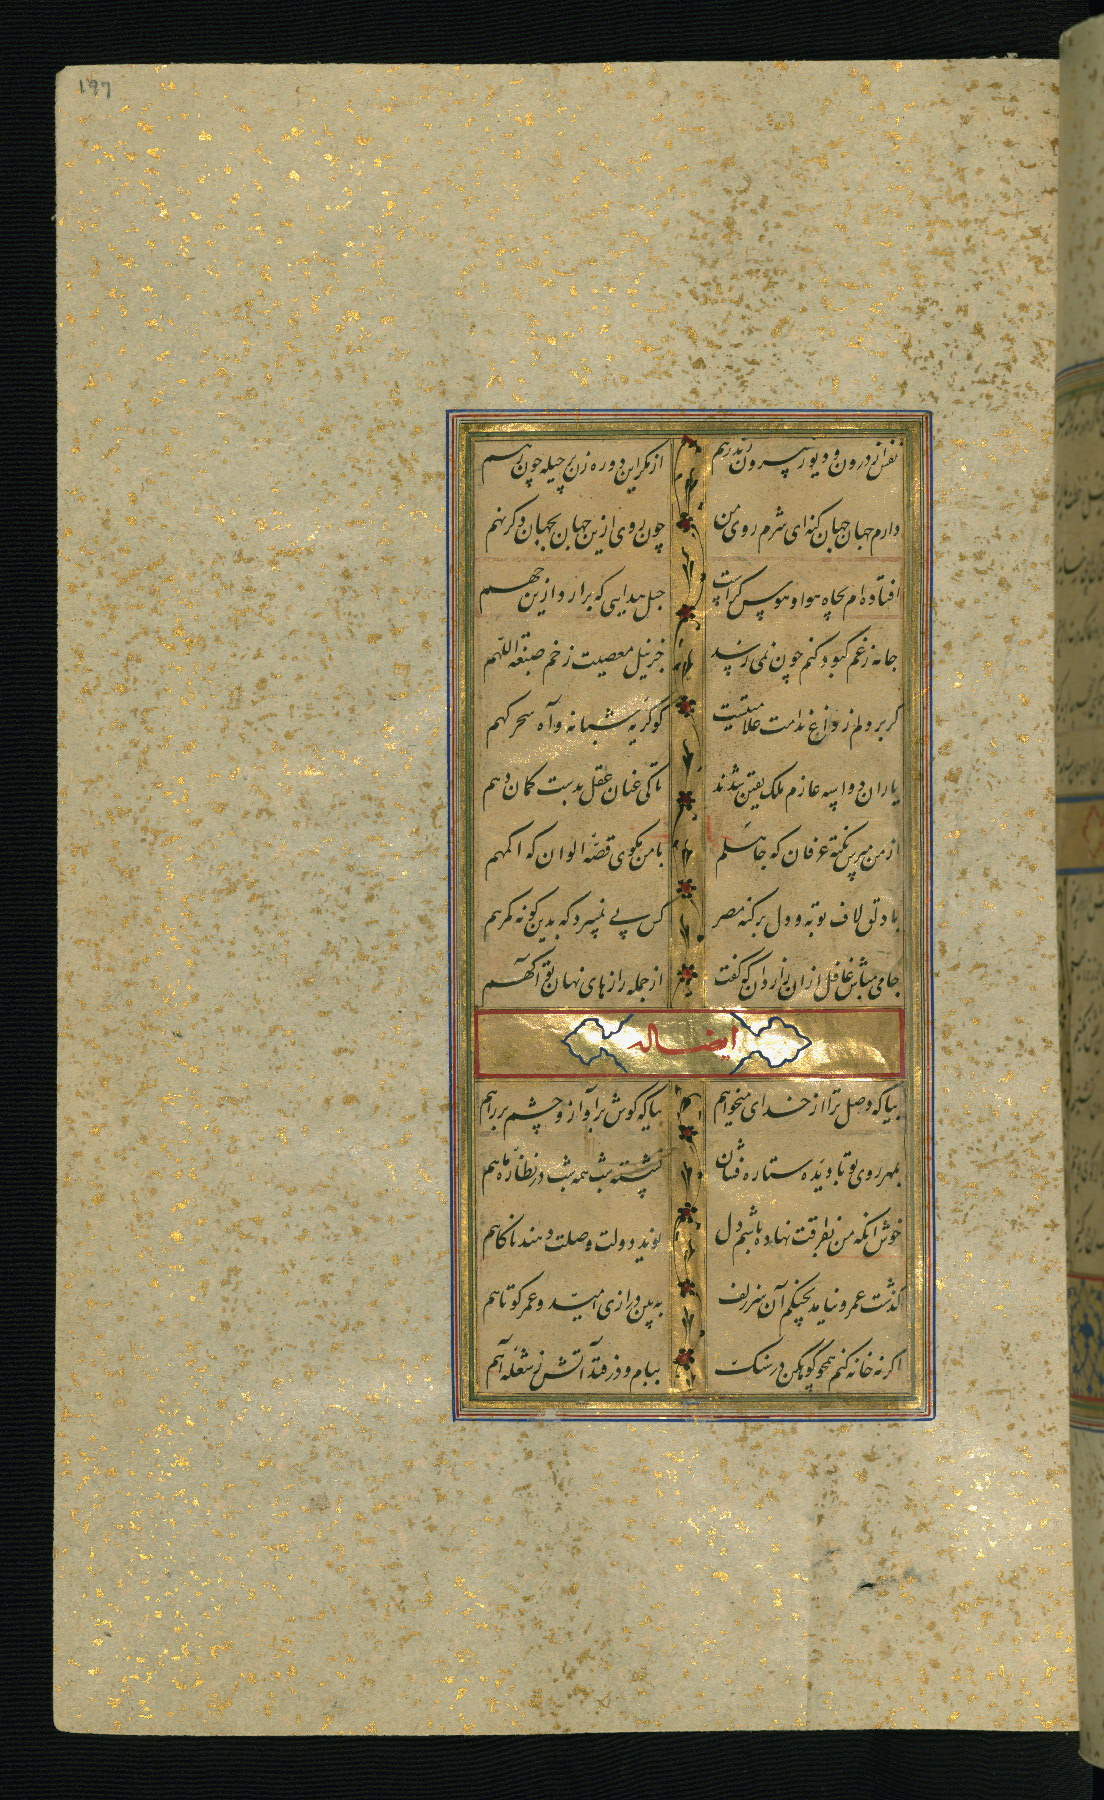 ۱۹۷
نفس از درون و دیو ز بیرون زند رهم از مکر این دو ره زن پر حیله چون رهم
دارم جهان جهان گنه ای شرم روی من چون روی ازین جهان بجهان دگر نهم
افتاده ام بچاه هوا و هوس کجاست حبل هدایتی که برآرد ازین چهم
جامه ز غم کبود کنم چون نمی رسد جز نیل معصیت ز خم صبغة اللهم
گر بر دلم ز داغ ندامت علامتیست کو گریه شبانه و آه سحرگهم
یاران دو اسپه عازم ملک یقین شدند تا کی عنان عقل بدست گمان دهم
از من مپرس نکته عرفان که جاهلم با من مگوی قصه الوان که اکمهم
با دلق لاف توبه و دل بر گنه مصر کس پی نمیبرد که بدین گونه گمرهم
جامی مباش غافل از آن رازدان که گفت از جمله رازهای نهان تو آگهم
ایضا له
بیا که وصل ترا از خدای میخواهم بیا که گوش بر آواز و چشم بر راهم
بمهر روی تو با دیده ستاره فشان نشسته شب همه شب در نظاره ماهم
خوش آنکه من بفراقت نهاده باشم دل نوید دولت وصلت دهند ناگاهم
گذشت عمر و نیامد بچنگم آن سر زلف ببین درازی امید و عمر کوتاهم
اگر نه خانه کنم همچو کوهکن در سنگ ببام و در فتد آتش ز شعله آهم